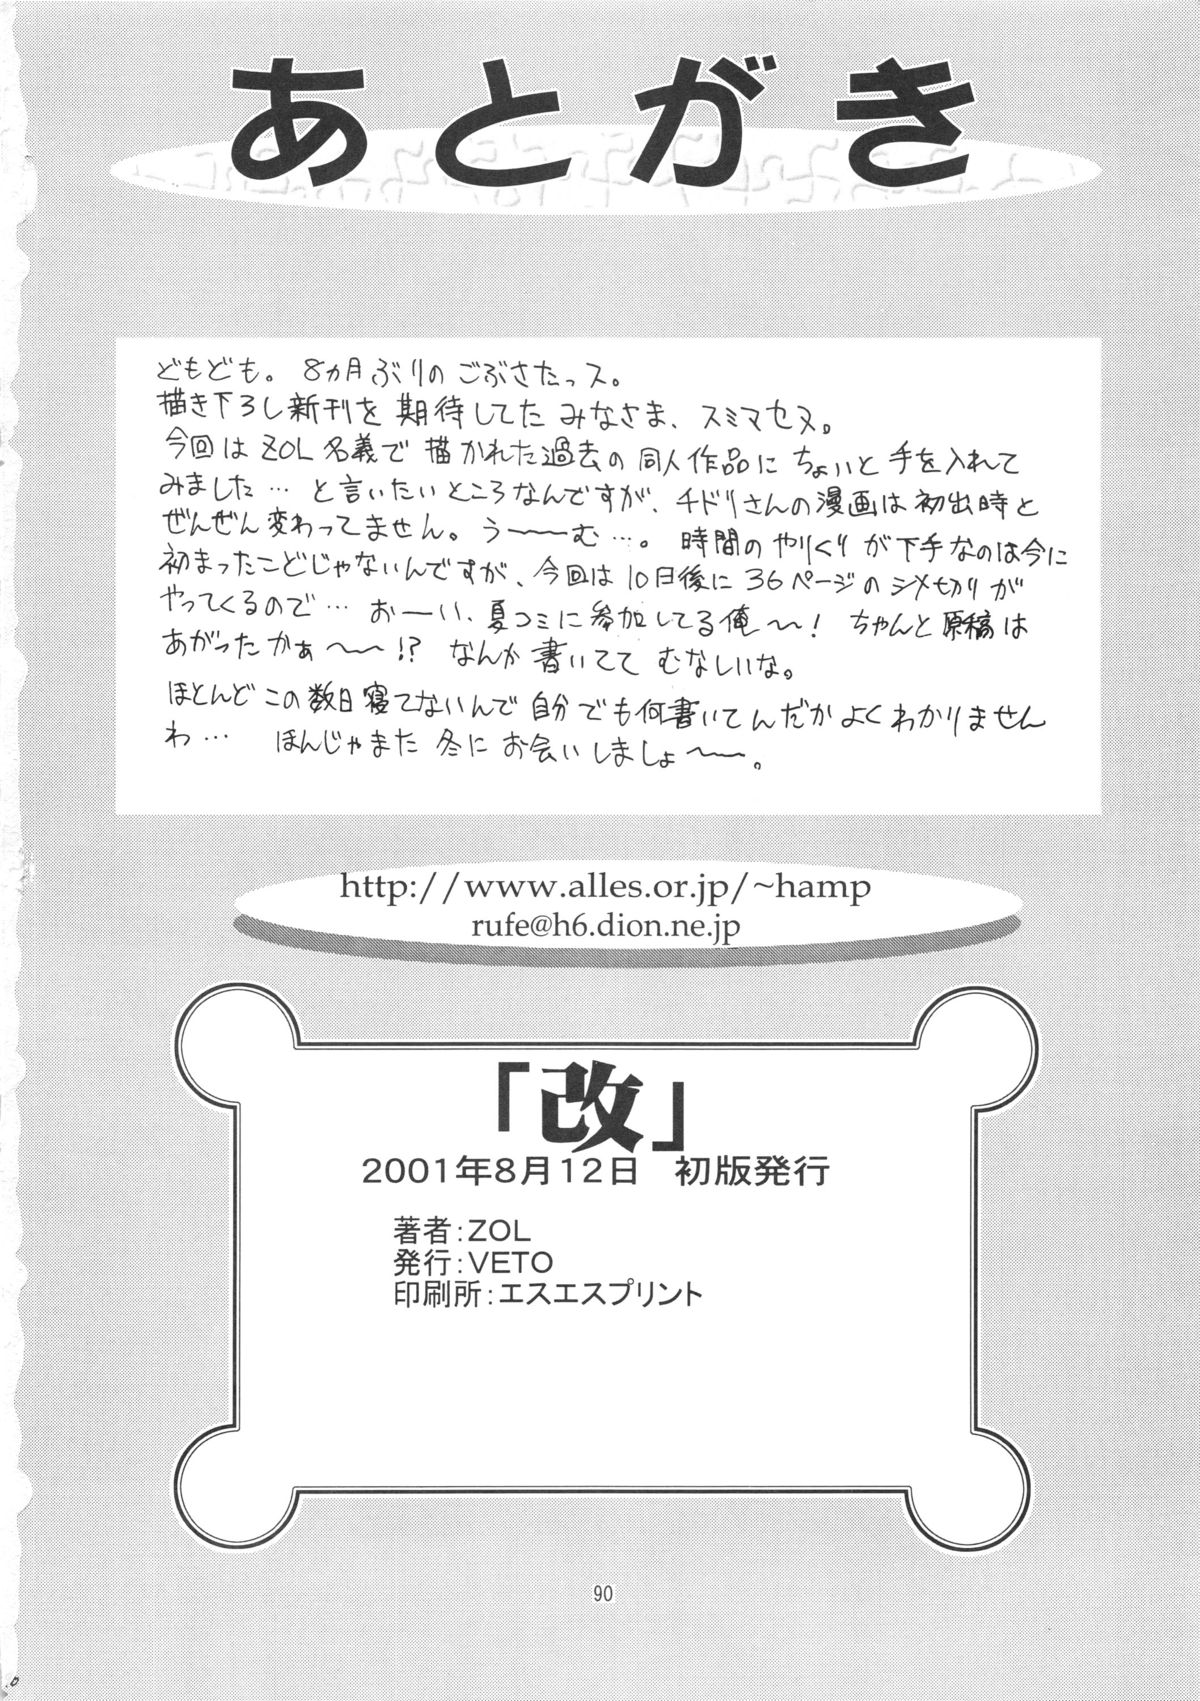 あとがき
どもども。8ヵ月ぶりのごぶさたっス。
描き下ろし新刊を期待してたみなさま、スミマセヌ。
今回はZOL名義で描かれた過去の同人作品にちょいと手を入れて
みました…と言いたいところなんですが、チドリさんの漫画は初出時と
ぜんぜん変わってません。う〜〜む…。時間のやりくりが下手なのは今に
初まったこどじゃないんですが、今回は10日後に36ページのシメ切りが
やってくるので…おーい、夏コミに参加してる俺〜!ちゃんと原稿は
あがったかぁ〜〜!?なんか書いててむなしいな。
ほとんどこの数日寝てないんで自分でも何書いてんだかよくわかりません
わ…ほんじゃまた冬にお会いしましょ〜〜。
http://www.alles.or.jp/~hamp
rufe@h6.dion.ne.jp
「改」
2001年8月12日　初版発行
著者:ZOL
発行:VETO
印刷所:エスエスプリント
90